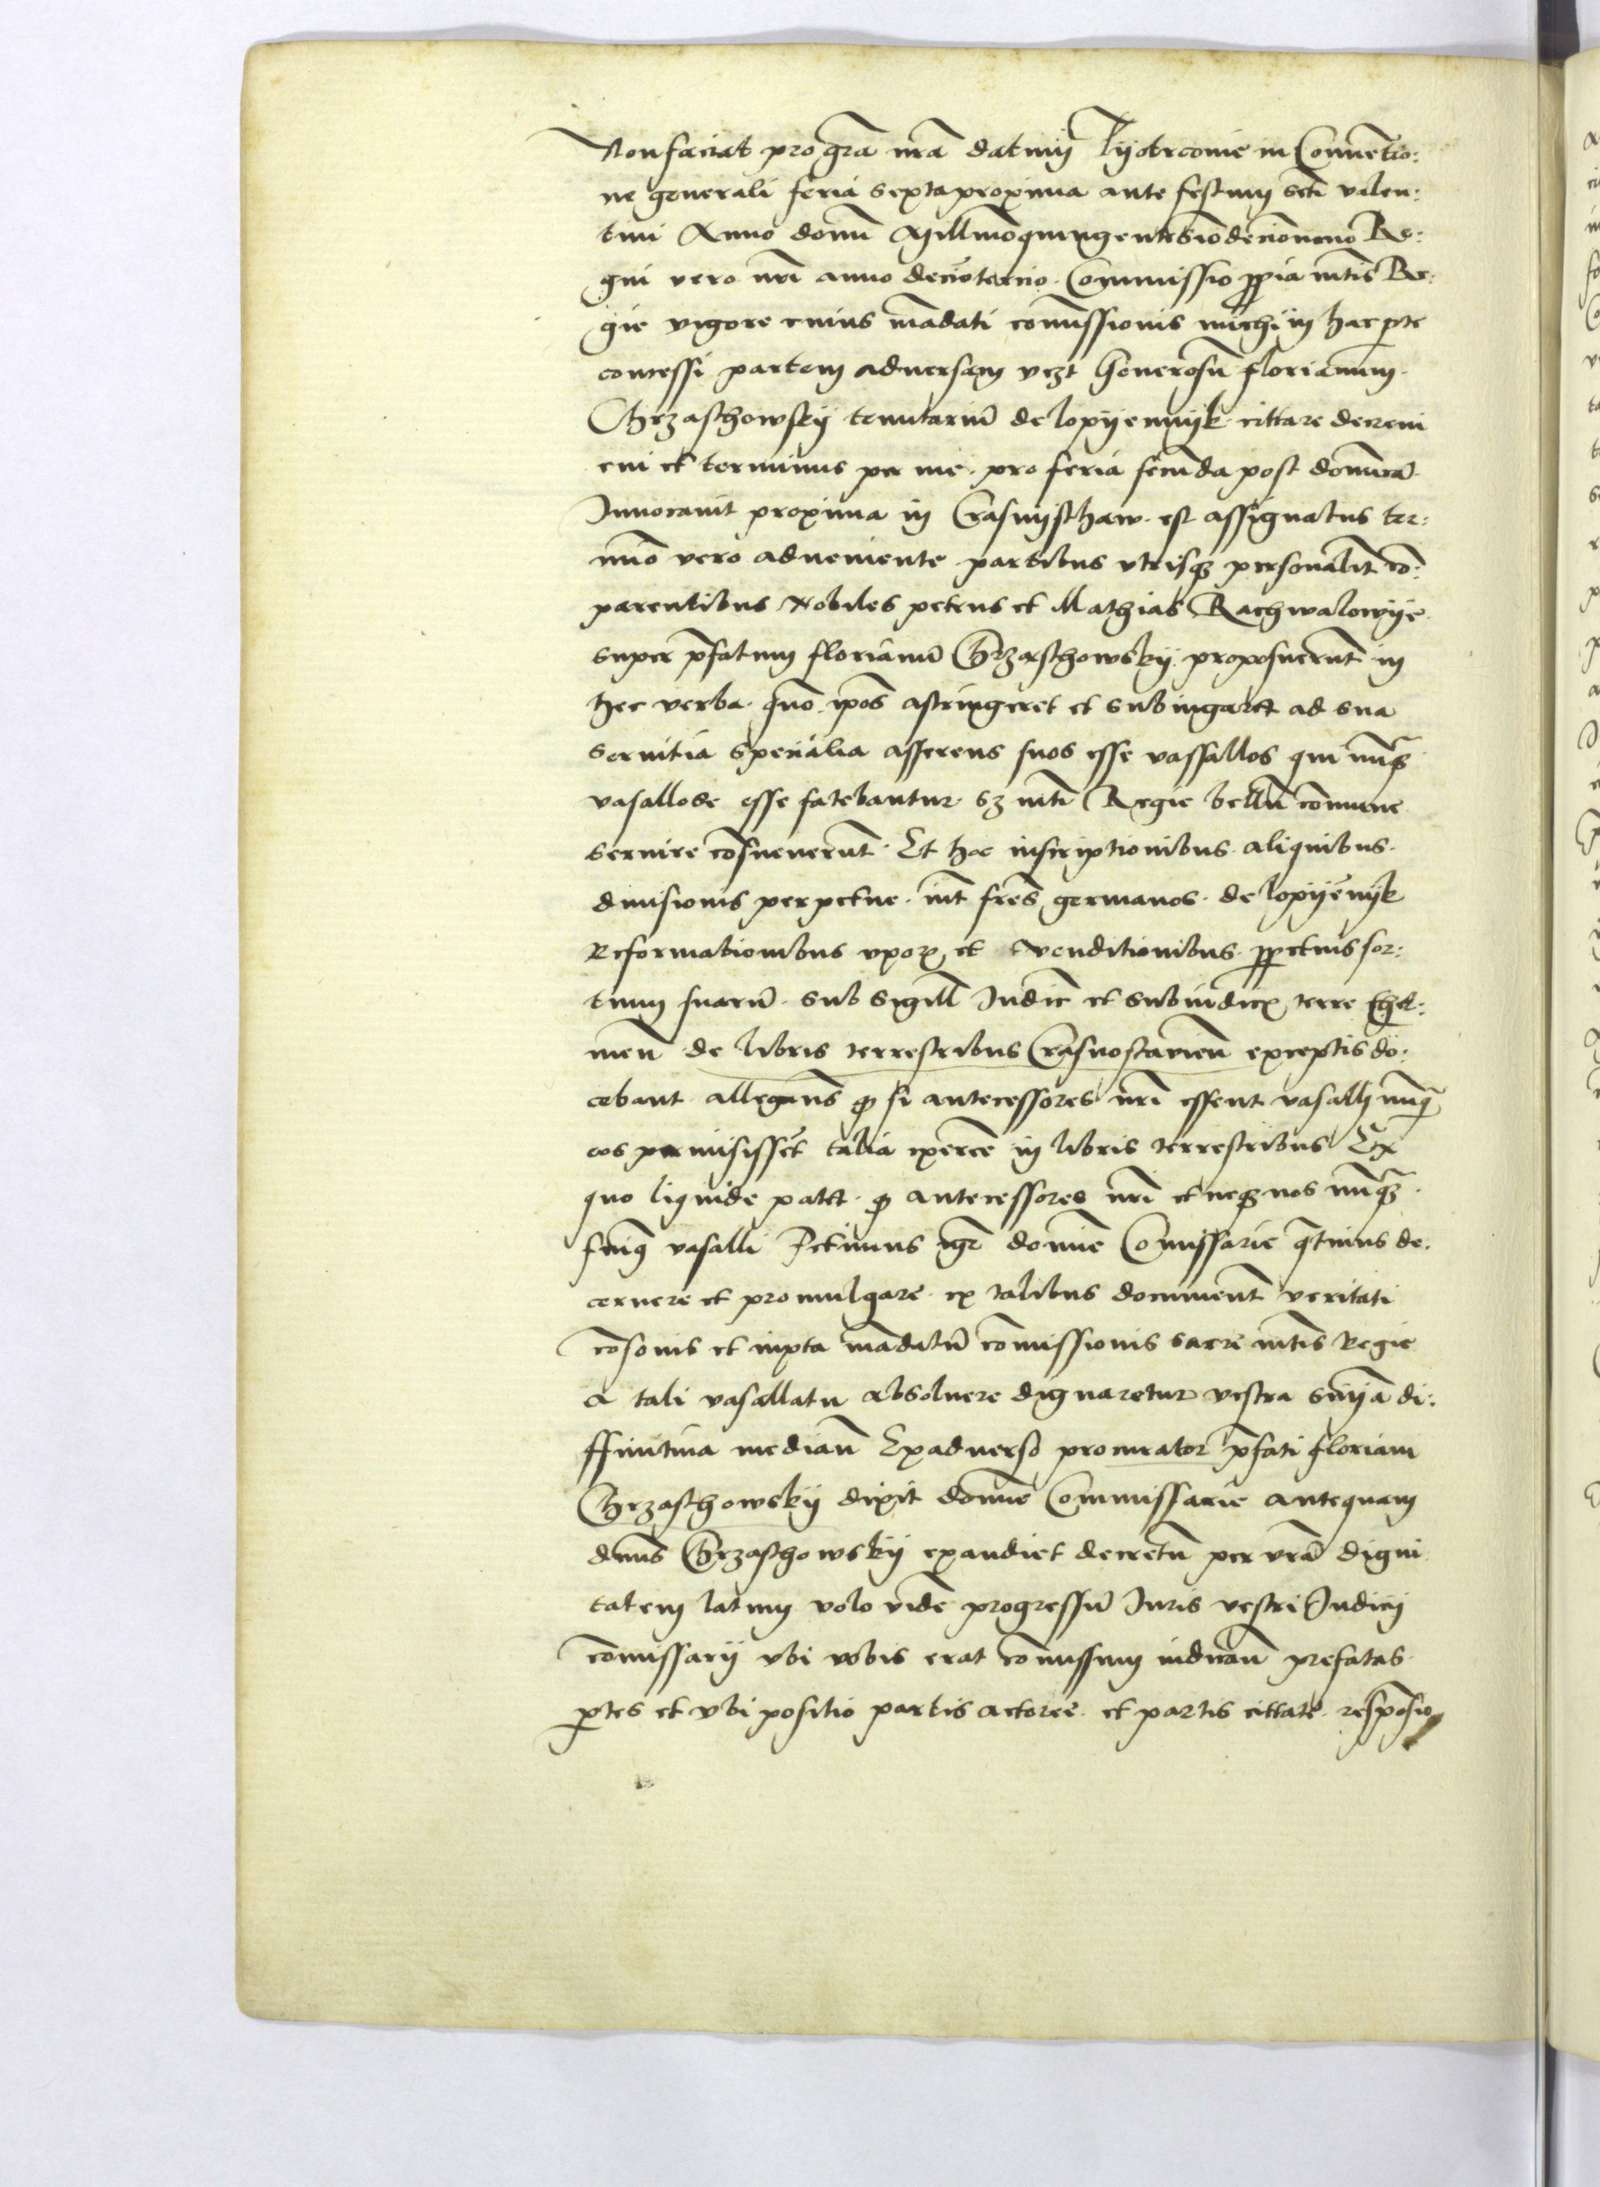 Non faciat pro gra nra datum Pyotrcovie in Conventio:
ne generali feria sexta proxima ante festum scti valen:
tini Anno domi Millmo quingentesio decionono Re:
gni vero nri anno deciotercio. Commissio ppria mtis Re:
gie vigore cuius madati comissionis michi in hac pte
concessi partem adversam vczt Generosu florianum
Grzaschowsky tenutariu de lopyennyk cittare decrevi
cui et terminus per me. pro feria secuda post domica
Invocavit proxima in Crasnysthaw. est assignatus ter:
mio vero adveniente partibus utrisqz personalit co:
parentibus Nobiles petrus et Mathias Rachwalowye
super pfatum florianu Grzaschowsky proposuerunt in
hec verba. quo ipos astringeret et subiugaret ad sua
servitia specialia asserens suos esse vassallos qui nuqz
vasallos esse fatebantur. sz mti Regie bellu comune
servire cosueverunt. Et hoc inscriptionibus aliquibus
divisionis perpetue. int fres germanos. de lopyenyk
Reformationibus uxorz et venditionibus ppetuis sor:
tium suaru. sub sigill Iudic et subiudicz terre Chel:
men de libris terrestribus Crasnostavien exceptis do:
cebant allegans qz si antecessores nri essent vasalli nuqz
eos permisisset talia exerce in libris terrestribus Ex
quo liquide patet. qz antecessores nri et neqz nos nuqz
fuimq vasalli Petimus igr domie Comissarie qtinus de:
cernere et promulgare ex talibus document veritati
cosonis et iuxta madatu comissionis sacre mtis Regie
a tali vasallatu absolvere dignaretur vestra snya di:
ffinitiva median Ex adverso procurator pfati floriani
Grzaschowsky dixit domie Commissarie antequam
dnus Grzaschowsky exaudiet decretu per vra digni
tatem latum volo vide progressu Iuris vestri Iudicii
comissarii ubi vobis erat comissum iudican prefatas
ptes et ubi positio partis actoree. et partis cittate. resposio